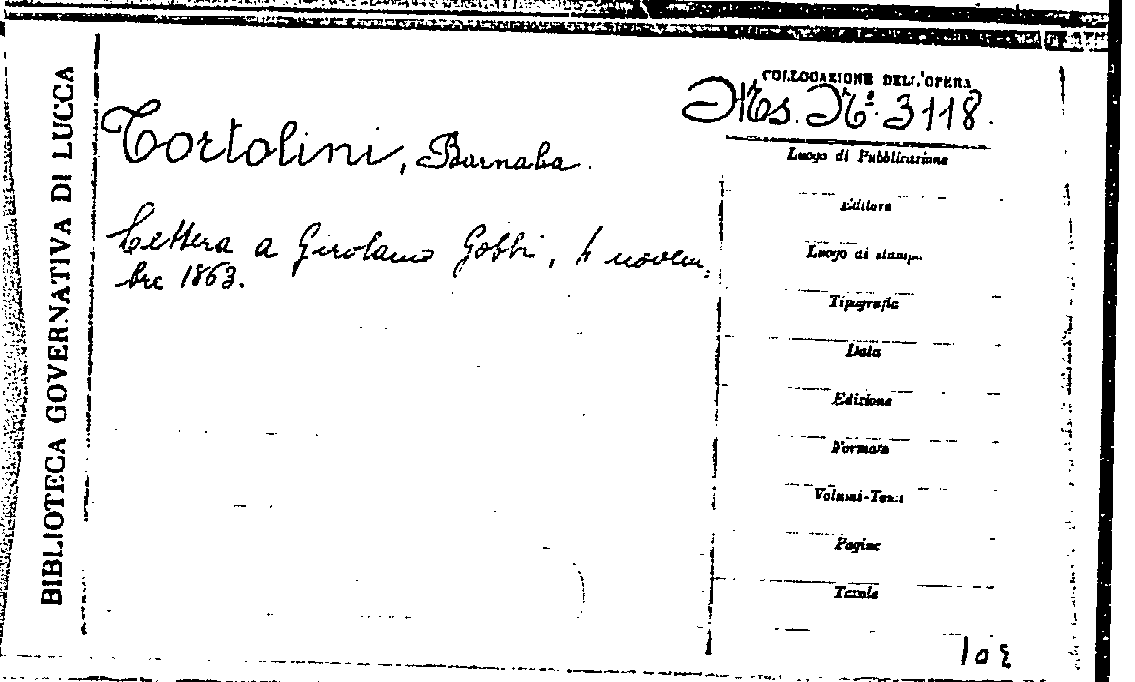 BIBLIOTECA GOVERNATIVA DI LUCCA
COLLOCAZIONE DELL'OPERA
Ms. N.º 3118.
Tortolini, Barnaba.
Lettera a Girolamo Gobbi, 4 novem,
bre 1863.
Luogo di Pubblicazione
Editore
Luogo di stampa
Tipografia
Data
Edizione
Formato
Volumi-Tomi
Pagine
Tavole